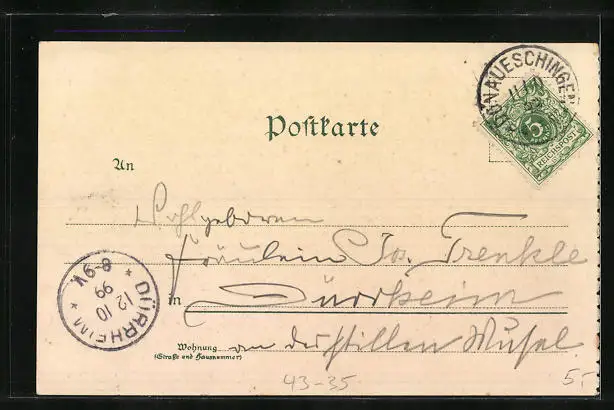 DONAUESCHINGEN
5
REICHSPOST
Postkarte
An
Wohlgeboren
Fräulein Jos. Trenkle
in Dürrheim
Wohnung
(Straße und Hausnummer)
an der stillen Musel
DÜRRHEIM
12 10
99
8-9V
43-35
5-